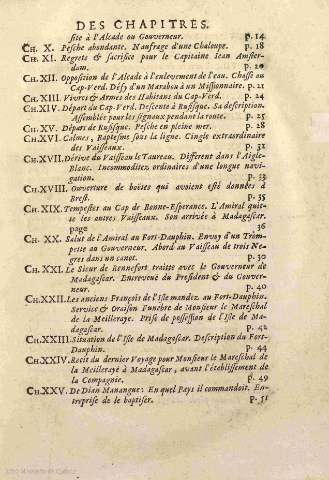 DES CHAPITRES.
site à l'Alcade ou Gouverneur. p. 14
CH. X. Pesche abondante. Naufrage d'une Chaloupe. p. 18
CH. XI. Regrets & sacrifice pour le Capitaine Jean Amster-
dam. p. 20
CH. XII. Opposition de l'Alcade à l'enlevement de l'eau. Chasse au
Cap-Verd. Défy d'un Marabou à un Missionnaire. p. 21
CH. XIII. Vivres & Armes des Habitans du Cap-Verd. p. 24
CH. XIV. Départ du Cap-Verd. Descente à Rufisque. Sa description.
Assemblée pour les signaux pendant la route. p. 25
CH. XV. Départ de Rufisque. Pesche en pleine mer. p. 28
CH. XVI. Calmes, Baptesme sous la ligne. Cingle extraordinaire
des Vaisseaux. p. 31
CH. XVII. Dérive du Vaisseau le Taureau. Different dans l'Aigle-
Blanc. Incommoditez ordinaires d'une longue navi-
gation. p. 33
CH. XVIII. Ouverture de boëtes qui avoient esté données à
Brest. p. 35
CH. XIX. Tempestes au Cap de Bonne-Esperance. L'Amiral quit-
te les autres Vaisseaux. Son arrivée à Madagascar.
page 36
CH. XX. Salut de l'Amiral au Fort-Dauphin. Envoy d'un Trom-
pette au Gouverneur. Abord au Vaisseau de trois Ne-
gres dans un canot. p. 30
CH. XXI. Le Sieur de Rennefort traitte avec le Gouverneur de
Madagascar. Entreveuë du President & du Gouver-
neur. p. 40
CH. XXII. Les anciens François de l'Isle mandez au Fort-Dauphin.
Service & Oraison Funebre de Monsieur le Mareschal
de la Meilleraye. Prise de possession de l'Isle de Ma-
dagascar. p. 42
CH. XXIII. Situation de l'Isle de Madagascar. Description du Fort-
Dauphin. p. 44
CH. XXIV. Recit du dernier Voyage pour Monsieur le Mareschal de
la Meilleraye à Madagascar, avant l'établissement de
la Compagnie. p. 49
CH. XXV. De Dian Manangue: En quel Pays il commandoit. En-
treprise de le baptiser. p. 51